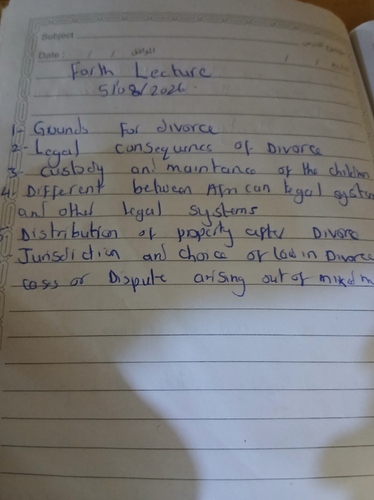 Subject
Date : / /
Forth Lecture
5/08/2026
1- Grounds for divorce
2- Legal consequence of Divorce
3- custody and maintance of the children
4- Different between African legal system
and other legal systems
5- Distribution of property after Divorce
- Jurisdiction and choice of law in Divorce
cases or Dispute arising out of mixed m